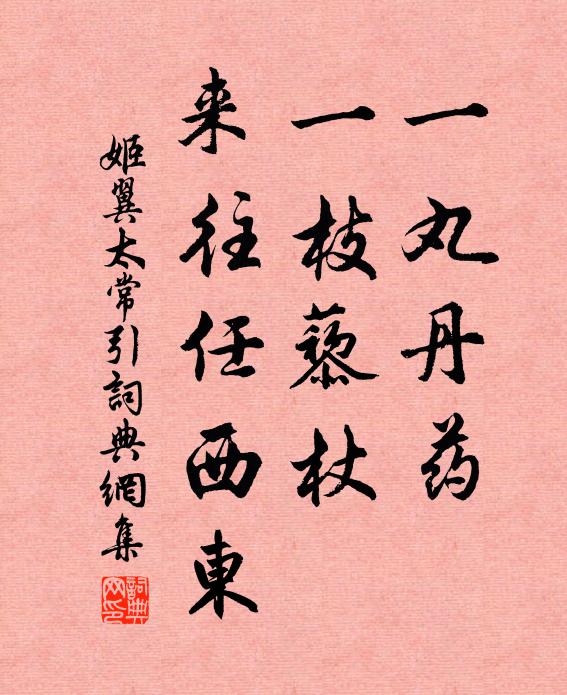 一丸丹药
一枝藜杖
来往任西東
姬翼太常引詞典網集
詞典網印